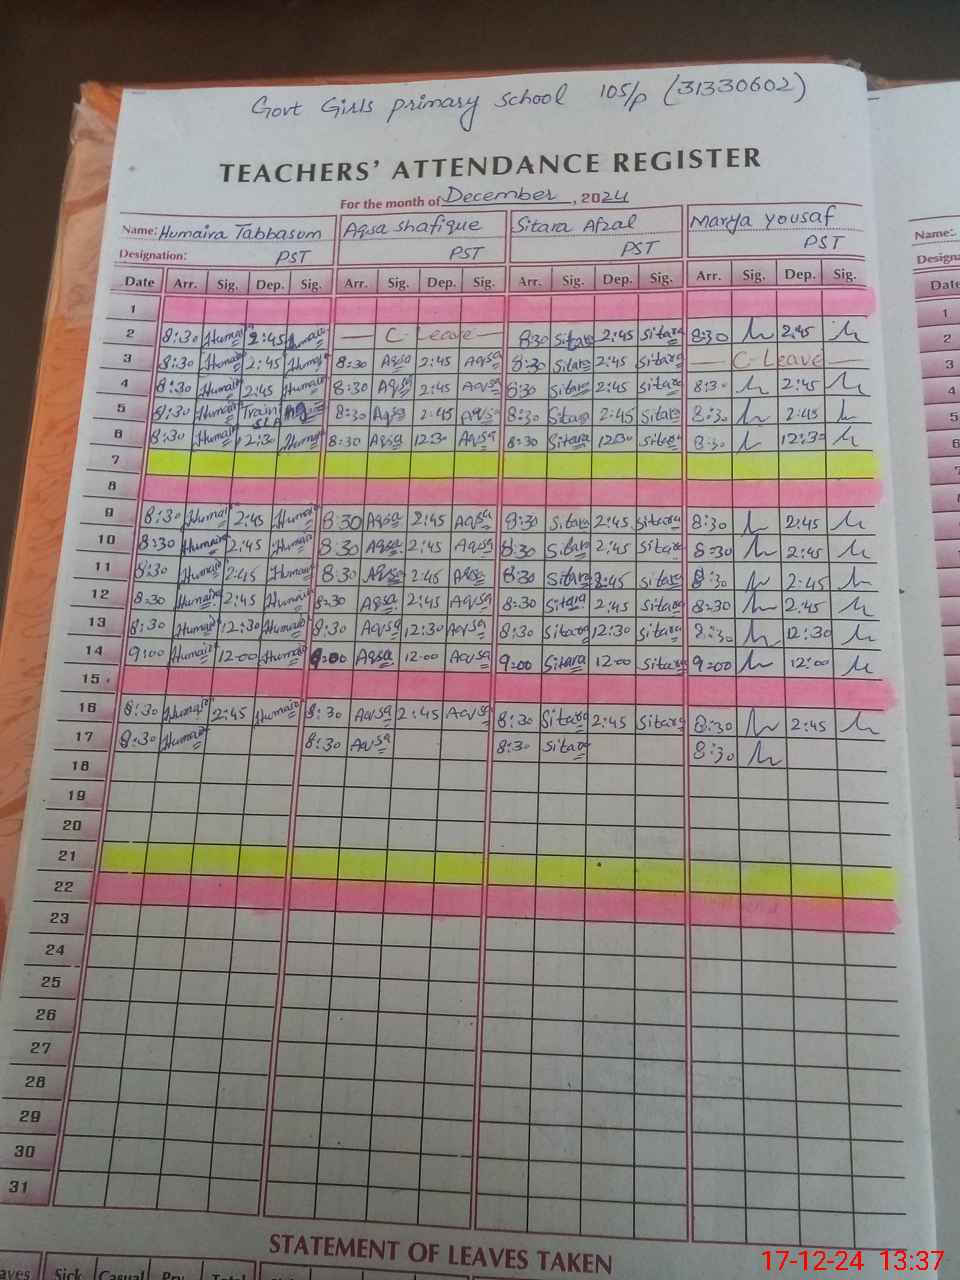 Govt Girls primary school 105/p (31330602)
TEACHERS' ATTENDANCE REGISTER
For the month of December, 2024
Name: Humaira Tabbasum Aqsa shafique Sitara Afzal Marya yousaf
Name:
Designation: PST PST PST PST
Date Arr. Sig. Dep. Sig. Arr. Sig. Dep. Sig. Arr. Sig. Dep. Sig. Arr. Sig. Dep. Sig.
Date
1
2 8:30 2:45 C-Leave 8:30 Sitara 2:45 Sitara 8:30 2:45
3 8:30 2:45 8:30 Aqsa 2:45 Aqsa 8:30 Sitara 2:45 Sitara C-Leave
4 8:30 2:45 8:30 Aqsa 2:45 Aqsa 8:30 Sitara 2:45 Sitara 8:30 2:45
5 8:30 8:30 Aqsa 2:45 Aqsa 8:30 Sitara 2:45 Sitara 8:30 2:45
6 8:30 2:30 8:30 Aqsa 12:30 Aqsa 8:30 Sitara 12:30 Sitara 8:30 12:30
7
8
9 8:30 2:45 8:30 Aqsa 2:45 Aqsa 8:30 Sitara 2:45 Sitara 8:30 2:45
10 8:30 2:45 8:30 Aqsa 2:45 Aqsa 8:30 Sitara 2:45 Sitara 8:30 2:45
11 8:30 2:45 8:30 Aqsa 2:45 Aqsa 8:30 Sitara 2:45 Sitara 8:30 2:45
12 8:30 2:45 8:30 Aqsa 2:45 Aqsa 8:30 Sitara 2:45 Sitara 8:30 2:45
13 8:30 12:30 8:30 Aqsa 12:30 Aqsa 8:30 Sitara 12:30 Sitara 8:30 12:30
14 9:00 12:00 9:00 Aqsa 12:00 Aqsa 9:00 Sitara 12:00 Sitara 9:00 12:00
15
16 8:30 2:45 8:30 Aqsa 2:45 Aqsa 8:30 Sitara 2:45 Sitara 8:30 2:45
17 8:30 8:30 Aqsa 8:30 Sitara 8:30
18
19
20
21
22
23
24
25
26
27
28
29
30
31
STATEMENT OF LEAVES TAKEN
Sick Casual Total
17-12-24 13:37